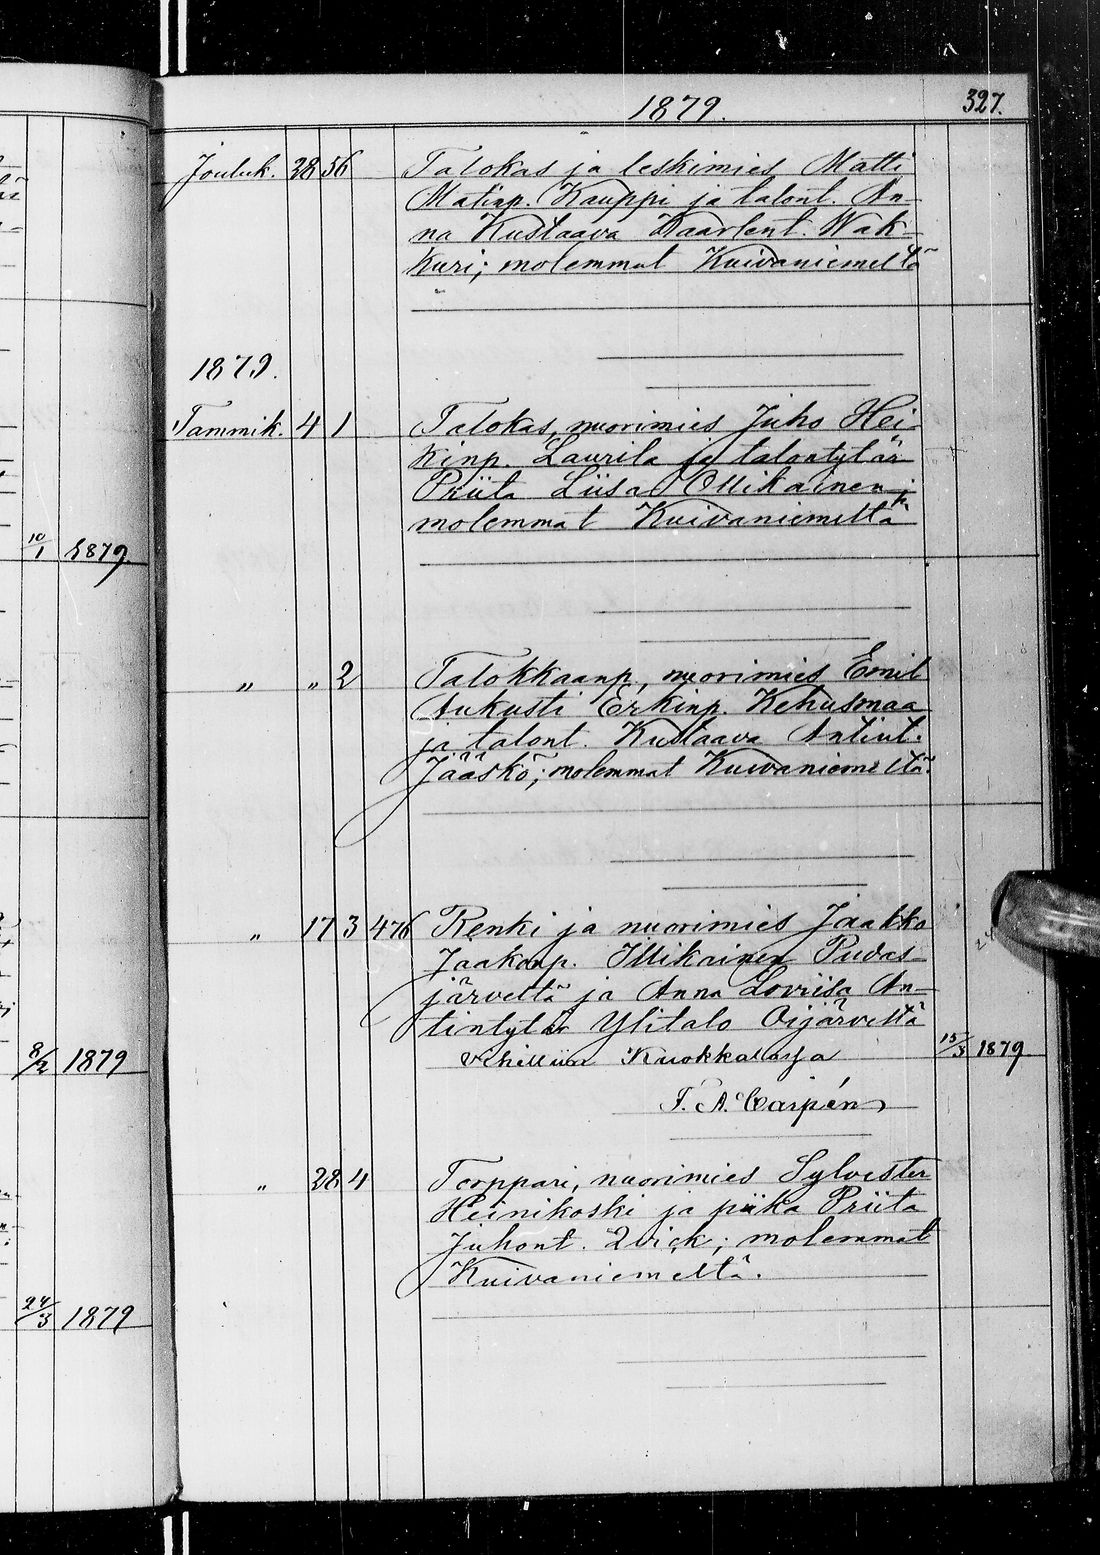 1879.
327.
Jouluk. 28 56 Talokas ja leskimies Matti
Matinp. Kauppi ja talont. An-
na Kustaava Kaarlent. Wak-
kuri; molemmat Kuivaniemeltä
1879.
Tammik. 4 1 Talokas, nuorimies Juho Hei-
kinp. Laurila ja talontytär
Priita Liisa Ollikainen;
molemmat Kuivaniemeltä
10/1 1879.
„ „ 2 Talokkaanp., nuorimies Emil
Aukusti Erkinp. Kehusmaa
ja talont. Kustaava Antint.
Jääskö; molemmat Kuivaniemeltä.
„ 17 3 476 Renki ja nuorimies Jaakko
Jaakonp. Illikainen Pudas-
järveltä ja Anna Loviisa An-
tintytär Ylitalo Oijärveltä
vihittiin Kuokkalassa 15/3 1879.
8/2 1879
F. A. Carpén
„ 28 4 Torppari, nuorimies Sylvester
Heinikoski ja piika Priita
Juhont. Qvick; molemmat
Kuivaniemeltä.
24/3 1879